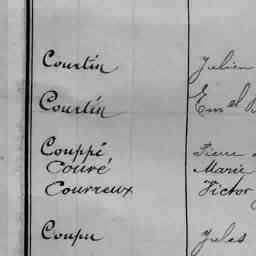 Courtin Julien
Courtin Em el
Couppé Pierre
Couré Marie
Courreux Victor
Coupu Jules